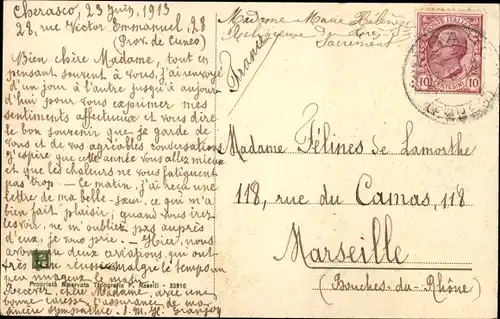 Cherasco, 23 Juin, 1913
28, rue Victor Emmanuel, 28
(Prov. de Cuneo)
Bien chère Madame, tout en
pensant souvent à vous, j'ai renvoyé
d'un jour à l'autre jusqu'à aujour
d'hui pour vous exprimer mes
sentiments affectueux et vous dire
le bon souvenir que je garde de
vous et de vos agréables conversations
J'espère que cette année vous allez mieux
et que les chaleurs ne vous fatiguent
pas trop. — Ce matin, j'ai reçu une
lettre de ma belle-sœur, ce qui m'a
bien fait plaisir, quand vous irez
les voir, ne m'oubliez pas auprès
d'eux, je vous prie. — Hier, nous
avons eu deux aviations, qui ont
très bien réussi malgré le temps un
peu nuageux le matin.
Proprietà Riservata Tipografia P. Raselli - 33916
Recevez, chère Madame, avec une
bonne caresse, l'assurance de ma
sincère sympathie. J. M. H.
Madame Marie Hélène
Religieuse du
Sacrement
(France)
POSTE ITALIANE
10 CENTESIMI 10
Madame Félines de Lamorthe
118, rue du Camas, 118
Marseille
(Bouches-du-Rhône)